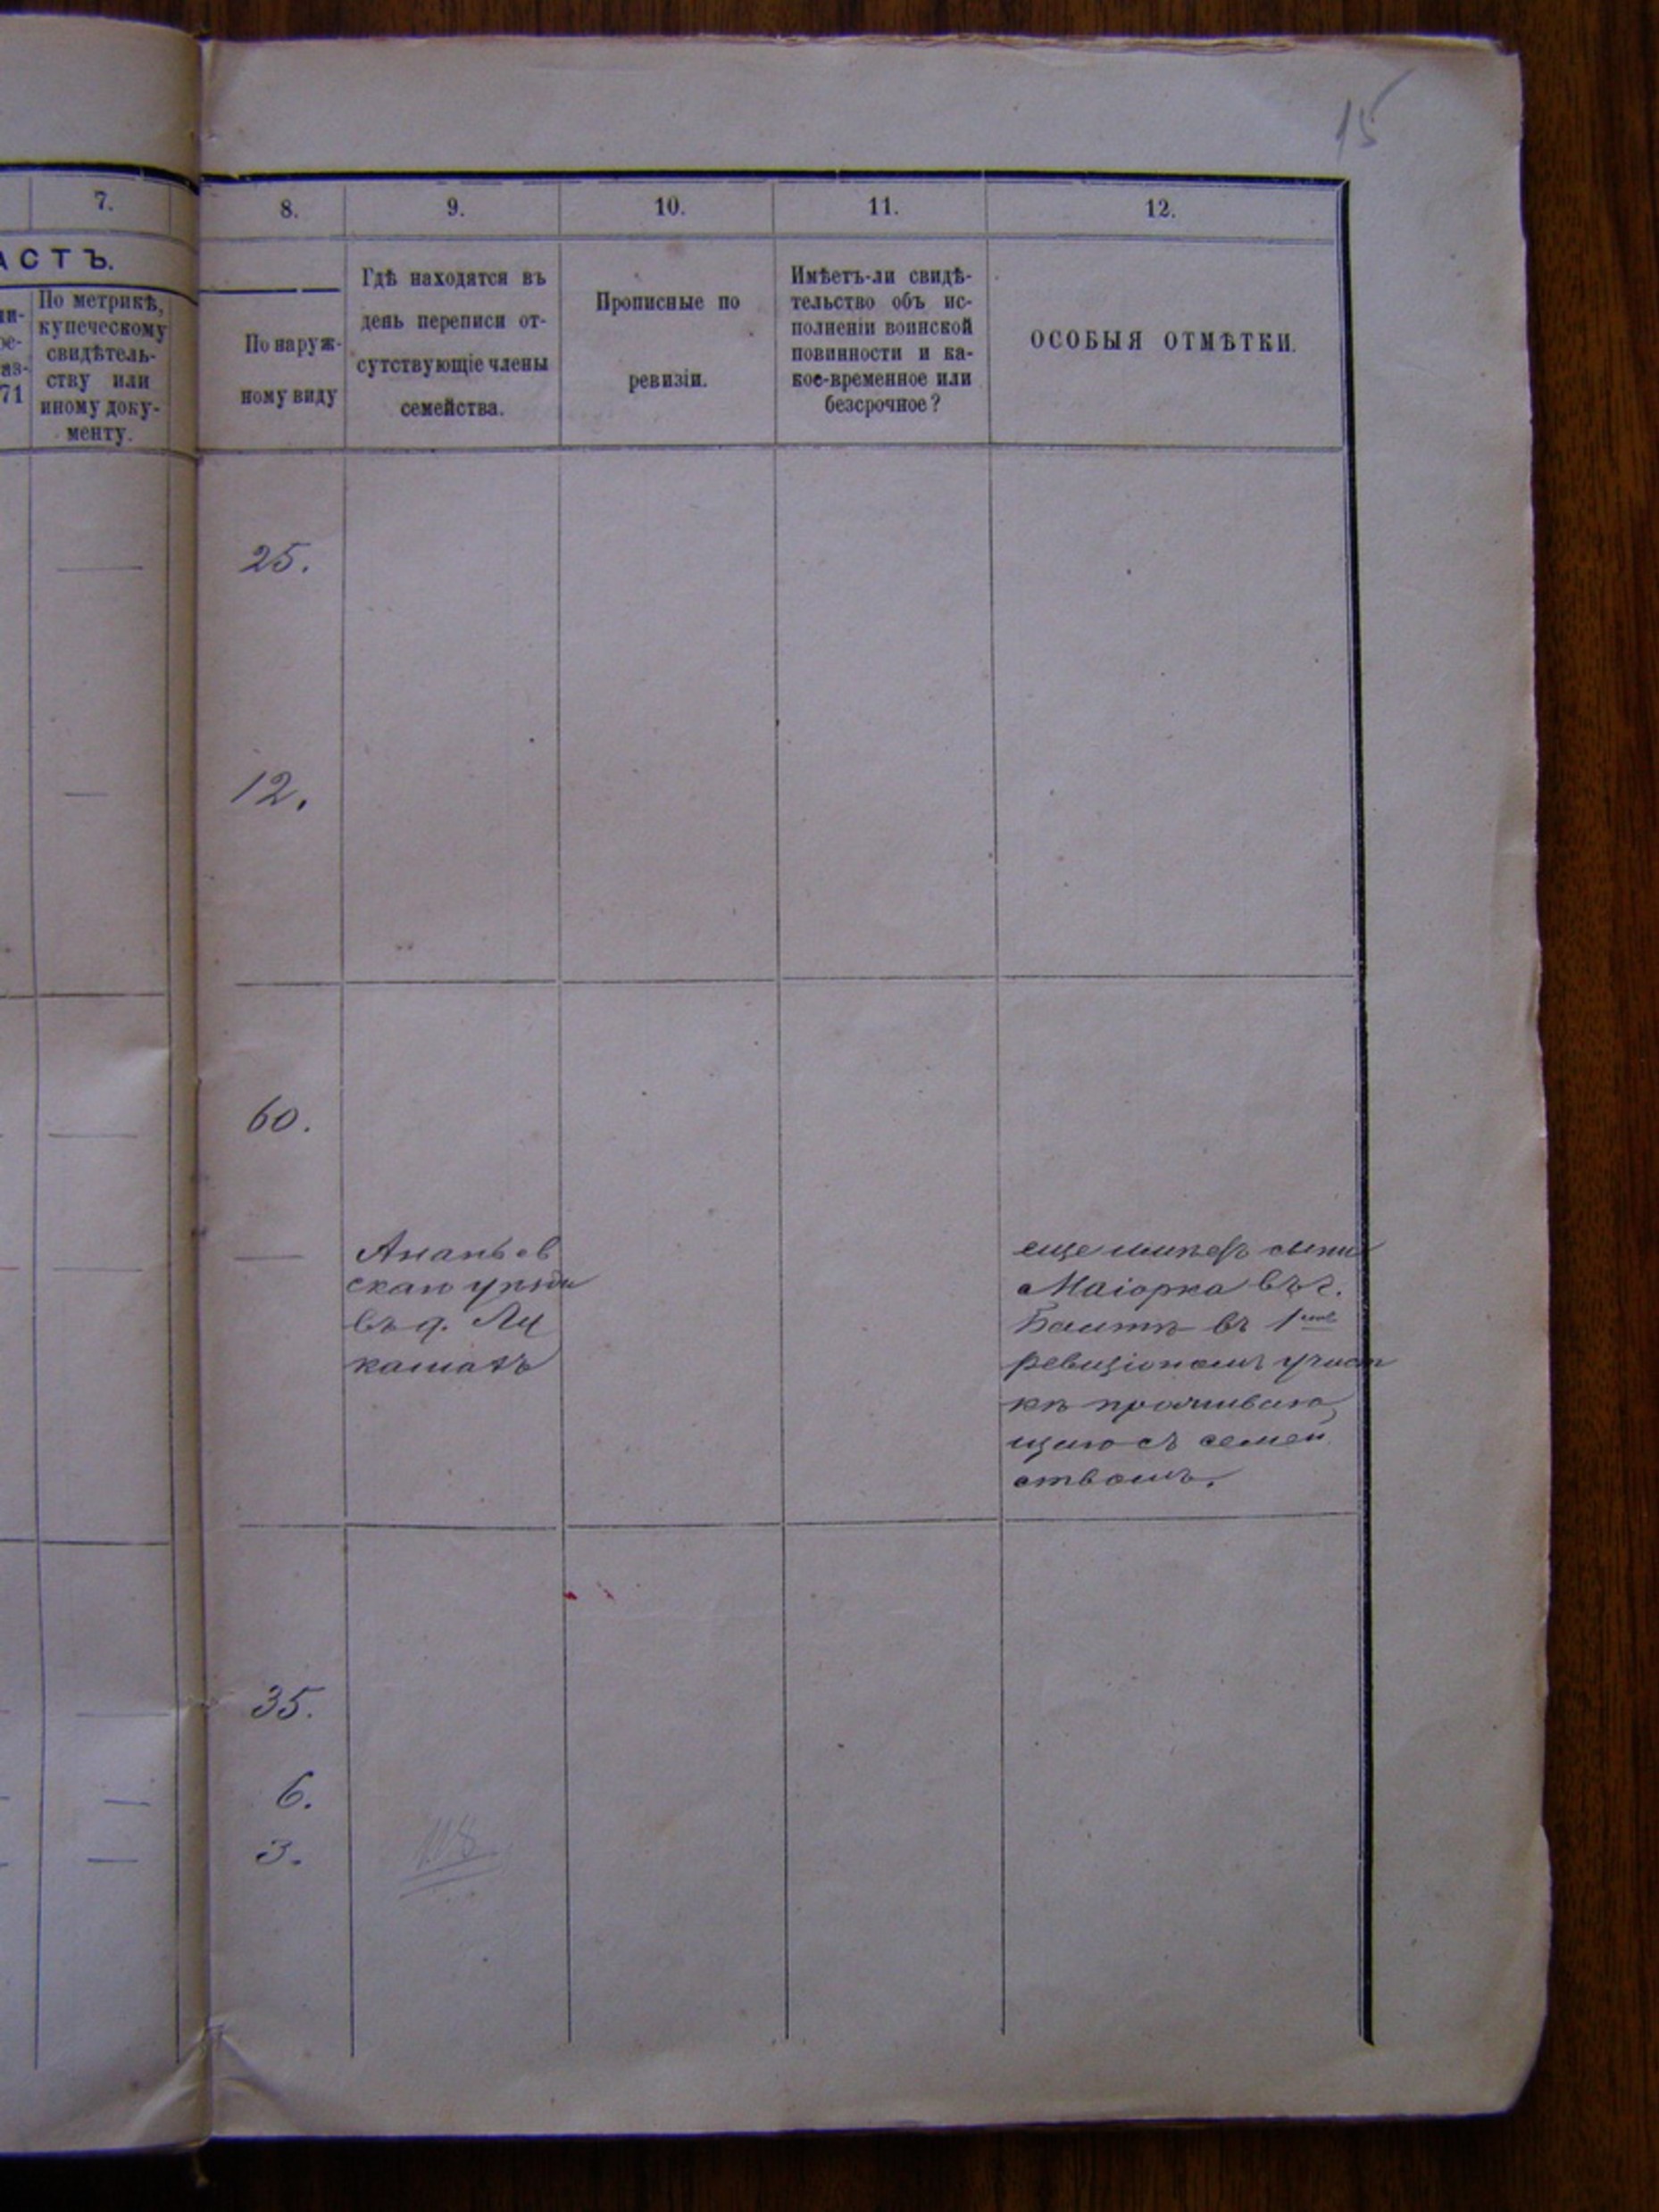 15
7.
8.
9.
10.
11.
12.
АСТЪ.
По метрикѣ,
купеческому
свидѣтель-
ству или
иному доку-
менту.
71
По наруж-
ному виду
Гдѣ находятся въ
день переписи от-
сутствующіе члены
семейства.
Прописные по
ревизіи.
Имѣетъ-ли свидѣ-
тельство объ ис-
полненіи воинской
повинности и ка-
кое-временное или
безсрочное?
ОСОБЫЯ ОТМѢТКИ.
25.
12.
60.
Ананьев
скаго уѣзда
въ д.
еще имѣетъ сына
Маіорка въ г.
въ 1мъ
ревизіономъ участ
кѣ проживаю
щаго съ семей
ствомъ.
35.
6.
3.
118